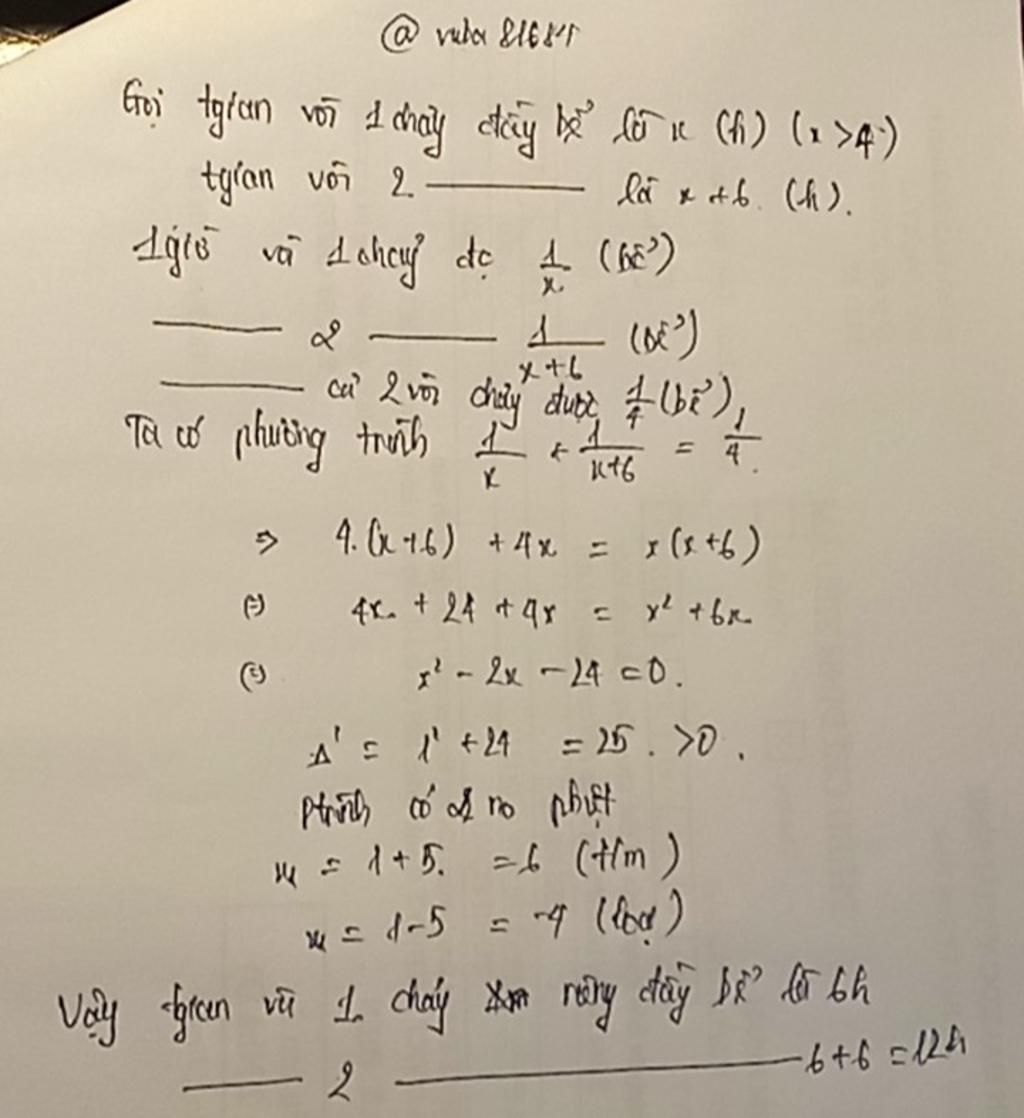 @ vuha 81681
Gọi tgian vòi 1 chảy đầy bể là x (h) (x >4)
tgian vòi 2 ——— là x +6. (h).
1 giờ vòi 1 chảy đc 1/x (bể)
——— 2 ——— 1/x+6 (bể)
——— cả 2 vòi chảy được 1/4 (bể)
Ta có phương trình 1/x + 1/x+6 = 1/4.
=> 4.(x+6) + 4x = x(x+6)
(=) 4x + 24 + 4x = x² + 6x
(=) x² - 2x - 24 = 0.
Δ' = 1² + 24 = 25. >0.
ptrình có 2 no pbiệt
x₁ = 1 + 5. = 6 (t/m)
x₂ = 1 - 5 = -4 (loại)
Vậy tgian vòi 1 chảy riêng đầy bể là 6h
——— 2 ——— 6+6 = 12h